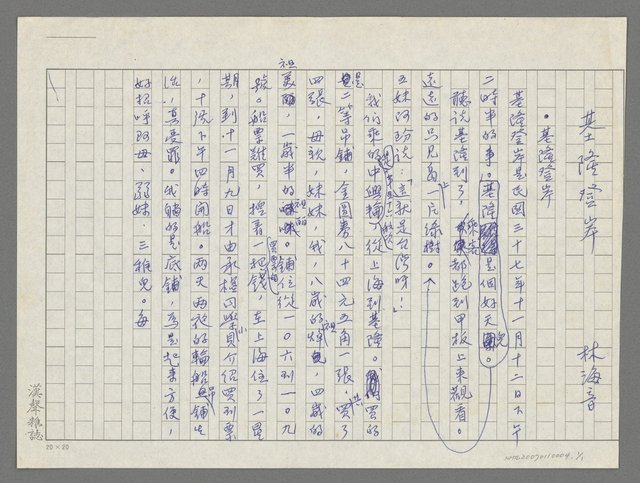 基隆登岸　　林海音
•基隆登岸
基隆登岸是民國三十七年十一月十二日下午
二時半的事。基隆是個好天兒。
聽說基隆到了，乘客都跑到甲板上來觀看。
遠遠的只見島上一片綠樹。
五妹阿珍說：「這就是台灣呀！」
我們乘的中興輪從上海到基隆。買的
是二等吊鋪，金圓券八十四元五角一張，共買了
四張，母親，妹妹，我，八歲的祖焯，四歲的
祖美，一歲半的祖麗。鋪位從一○六到一○九
號。船票難買，揑着一把錢，在上海住了一星
期，到十一月九日才由承楹同學小貝介紹買到票
，十後下午四時開船。兩天兩夜的輪船吊鋪生
活，真受罪。我睡的是底鋪，為是起來方便，
好招呼阿母、弱妹、三稚兒。每
漢聲雜誌
20×20
NMTL20070110004, 1/1